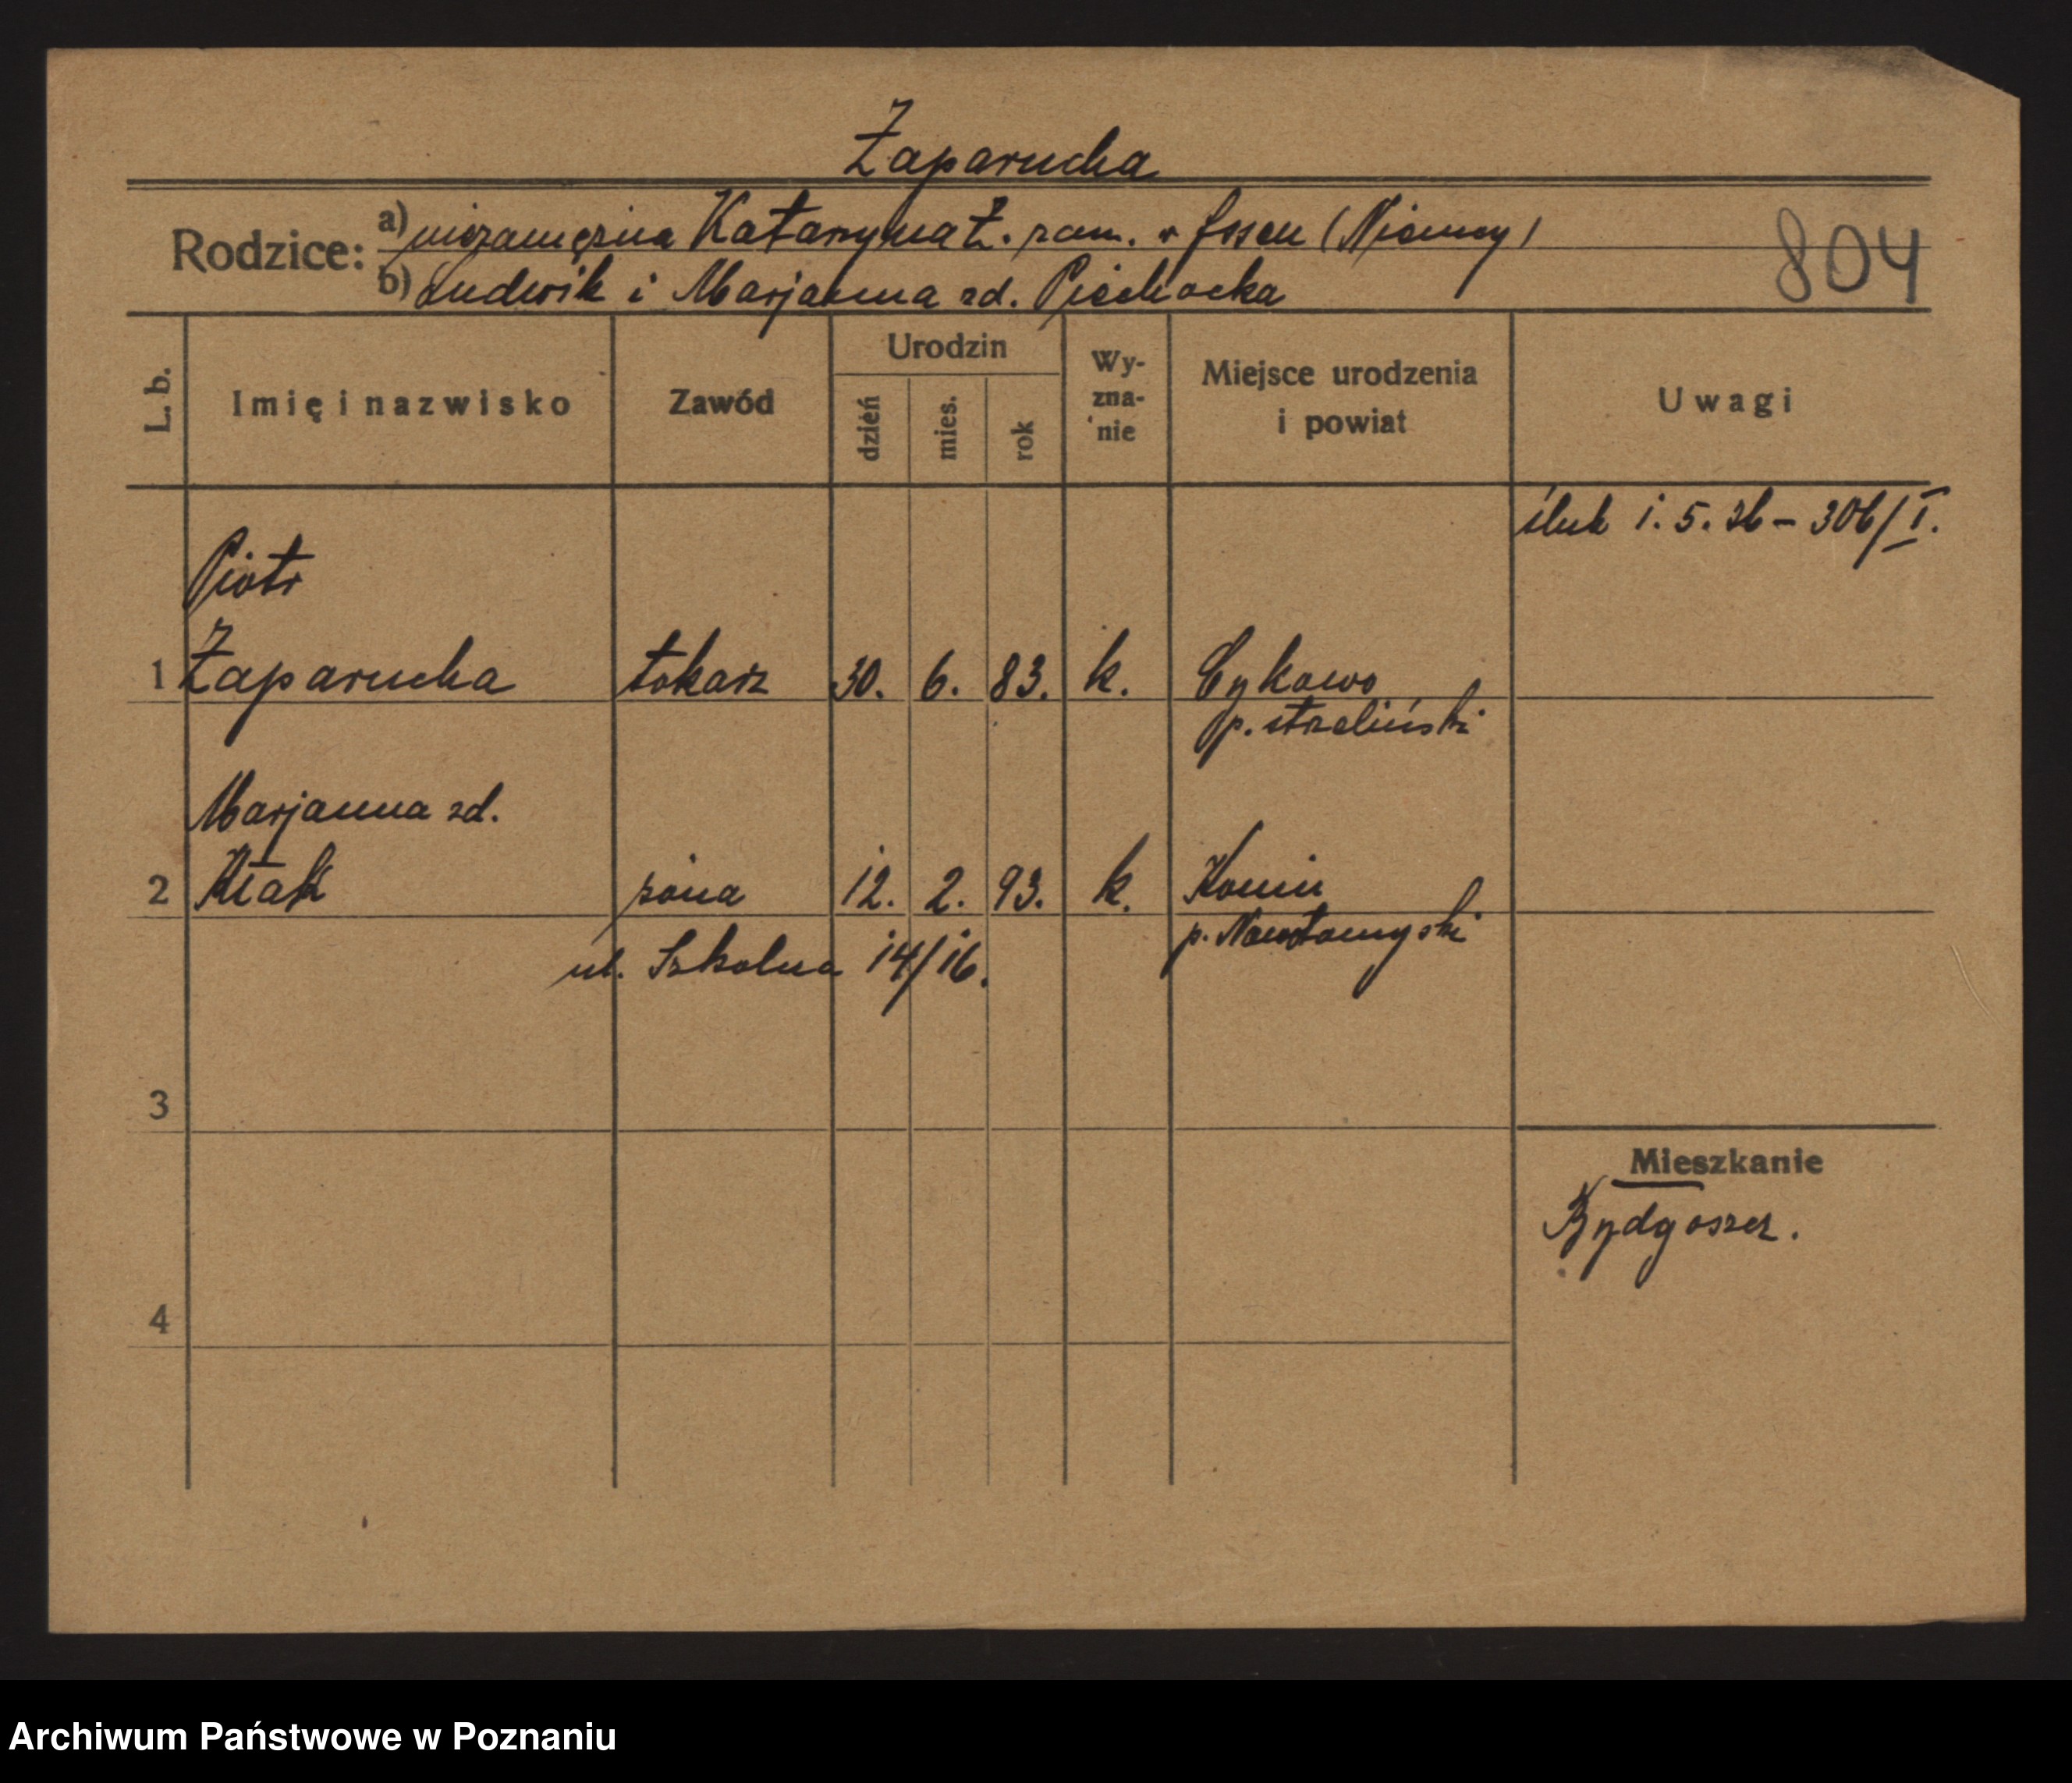 Żaparucha
Rodzice: a) niezamężna Katarzyna Ż. zam. w Essen (Niemcy)
b) Ludwik i Marjanna zd. Piechocka
804
L. b. Imię i nazwisko Zawód Urodzin dzień mies. rok Wy-zna-nie Miejsce urodzenia i powiat Uwagi
ślub 1. 5. 26 – 306/I.
Piotr
1 Żaparucha tokarz 30. 6. 83. k. Cykowo
p. strzeliński
Marjanna zd.
2 Ktak żona 12. 2. 93. k. Konin
p. Nowotomyski
ul. Szkolna 14/16.
3
Mieszkanie
Bydgoszcz.
4
Archiwum Państwowe w Poznaniu